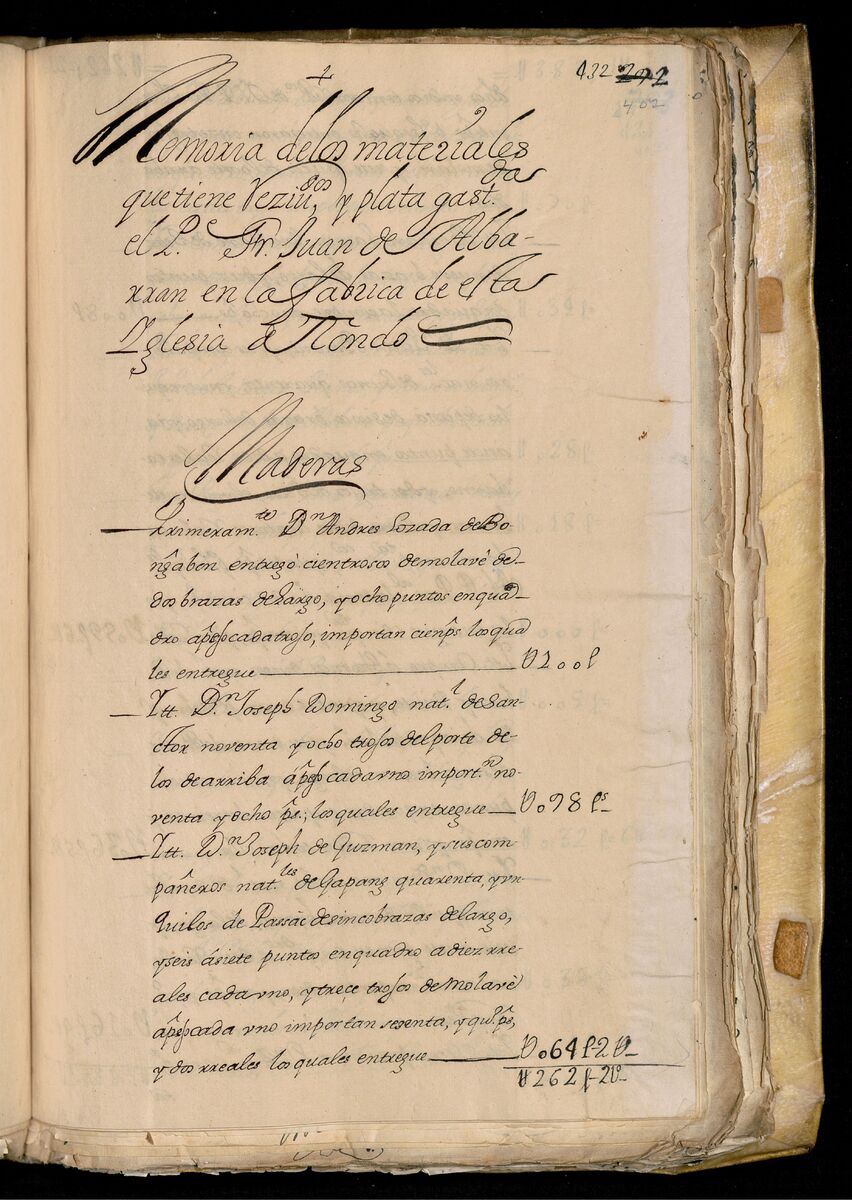 +
132 272
402
Memoria delos materiales
que tiene Reziu.dos, y plata gast.da
el P.e Fr. Juan de Alba-
rran en la fabrica de esta
Yglesia de Tõndo
Maderas
Primeram.te Dn Andres Lozada de Bo-
ng̃abon entregò cientrosos demolavè de-
dos brazas de largo, y ocho puntos en qua-
dro a peso cada troso, importan cien p̃s los qua
les entregue U100p
Ytt. D.n Joseph Domingo nat.l de San-
ctor noventa y ocho trosos del porte de-
los de arriba á peso cada vno import.n no-
venta y ocho p̃s; los quales entregue U098 ps
Ytt. D.n Joseph de Guzman, y sus com-
pañeros nat.les de Gapang quarenta, y vn
quilos de Passàc de sinco brazas de largo,
y seis á siete puntos en quadro a diez rre-
ales cada vno, y treçe trosos de Molavè
a peso cada vno importan sesenta, y qu.o p̃s,
y dos rreales los quales entregue U064p-2R
U262p-2R